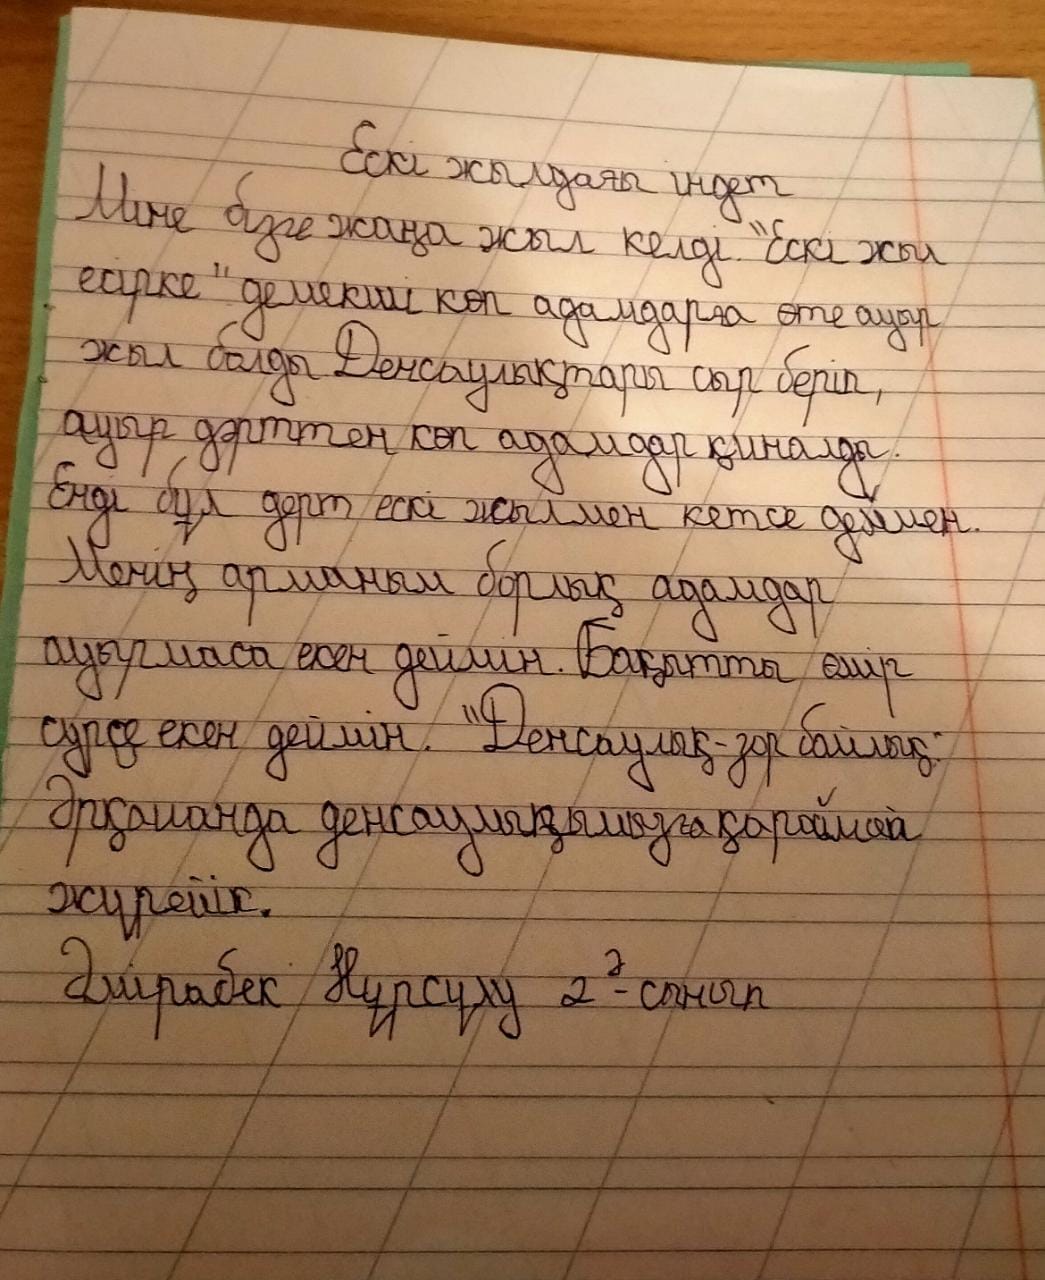 Ескі жылдағы індет
Міне бізге жаңа жыл келді. "Ескі жыл
есірке" демекші көп адамдарға өте ауыр
жыл болды Денсаулықтары сыр беріп,
ауыр дərттен көп адамдар қиналды.
Енді бұл дерт ескі жылмен кетсе деймен.
Менің арманым барлық адамдар
ауырмаса екен деймін. Бақытты өмір
сүрсе екен деймін. "Денсаулық-зор байлық."
Әрқашанда денсаулықымызға қараймай
жүрейік.
Әмірабек Нұрсұлу 2ә-сынып